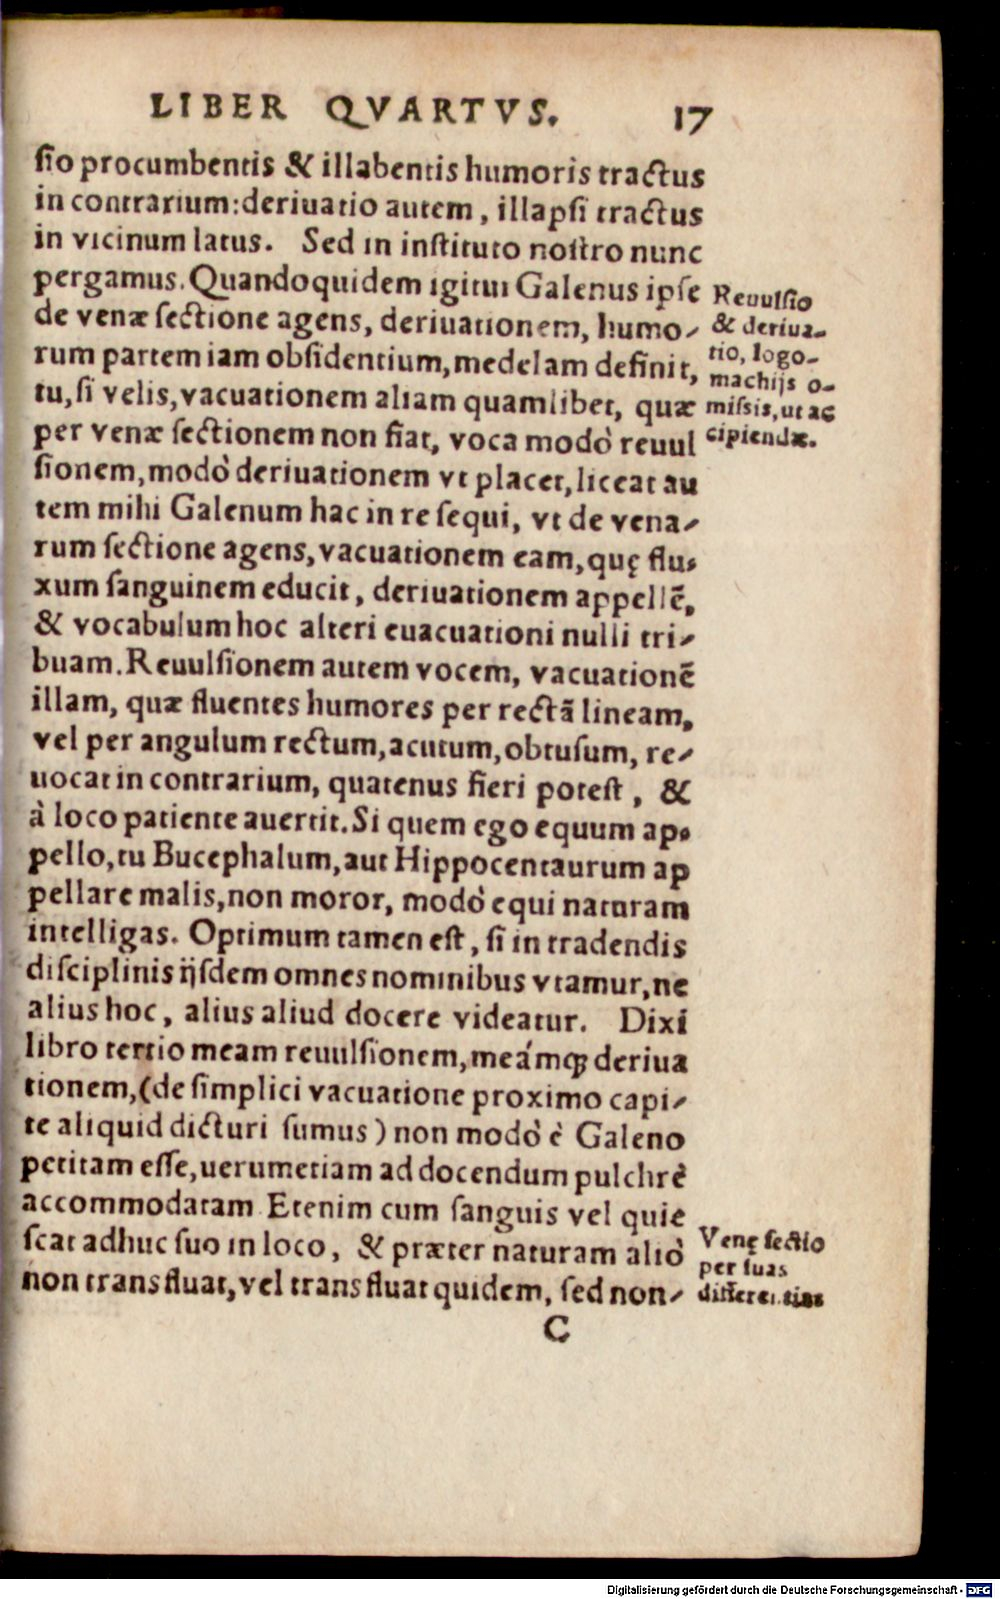 LIBER QVARTVS. 17
ſio procumbentis & illabentis humoris tractus
in contrarium:deriuatio autem, illapſi tractus
in vicinum latus. Sed in inſtituto noſtro nunc
pergamus. Quandoquidem igitur Galenus ipſe
de venæ ſectione agens, deriuationem, humo-
rum partem iam obſidentium, medelam definit,
tu, ſi velis, vacuationem aliam quamlibet, quæ
per venæ ſectionem non fiat, voca modò reuul
ſionem, modò deriuationem vt placet, liceat au
tem mihi Galenum hac in re ſequi, vt de vena-
rum ſectione agens, vacuationem eam, quę flu-
xum ſanguinem educit, deriuationem appellē,
& vocabulum hoc alteri euacuationi nulli tri-
buam. Reuulſionem autem vocem, vacuationē
illam, quæ fluentes humores per rectā lineam,
vel per angulum rectum, acutum, obtuſum, re-
uocat in contrarium, quatenus fieri poteſt, &
à loco patiente auertit. Si quem ego equum ap-
pello, tu Bucephalum, aut Hippocentaurum ap
pellare malis, non moror, modò equi naturam
intelligas. Optimum tamen eſt, ſi in tradendis
diſciplinis ijſdem omnes nominibus vtamur, ne
alius hoc, alius aliud docere videatur. Dixi
libro tertio meam reuulſionem, meámq́ꝫ deriua
tionem, (de ſimplici vacuatione proximo capi-
te aliquid dicturi ſumus) non modò è Galeno
petitam eſſe, uerumetiam ad docendum pulchrè
accommodatam Etenim cum ſanguis vel quie
ſcat adhuc ſuo in loco, & præter naturam aliò
non transfluat, vel transfluat quidem, ſed non-
C
Reuulſio
& deriua-
tio, logo-
machijs o-
miſsis, ut ac
cipiendæ.
Venę ſectio
per ſuas
differentias
Digitalisierung gefördert durch die Deutsche Forschungsgemeinschaft - DFG